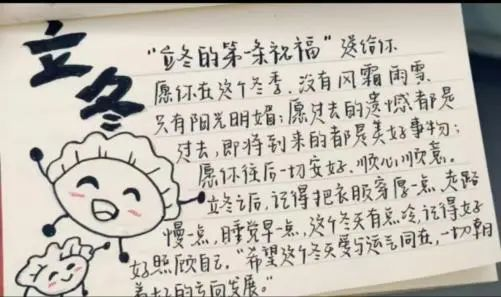 立冬
“立冬的第一条祝福”送给你
愿你在这个冬季、没有风霜雨雪、
只有阳光明媚；愿过去的遗憾都是
过去，即将到来的都是美好事物；
愿你往后一切安好、顺心顺意。
立冬之后，记得把衣服穿厚一点，走路
慢一点，睡觉早一点，这个冬天有点冷，记得好
好照顾自己。“希望这个冬天爱与运气同在，一切朝
着好的方向发展。”